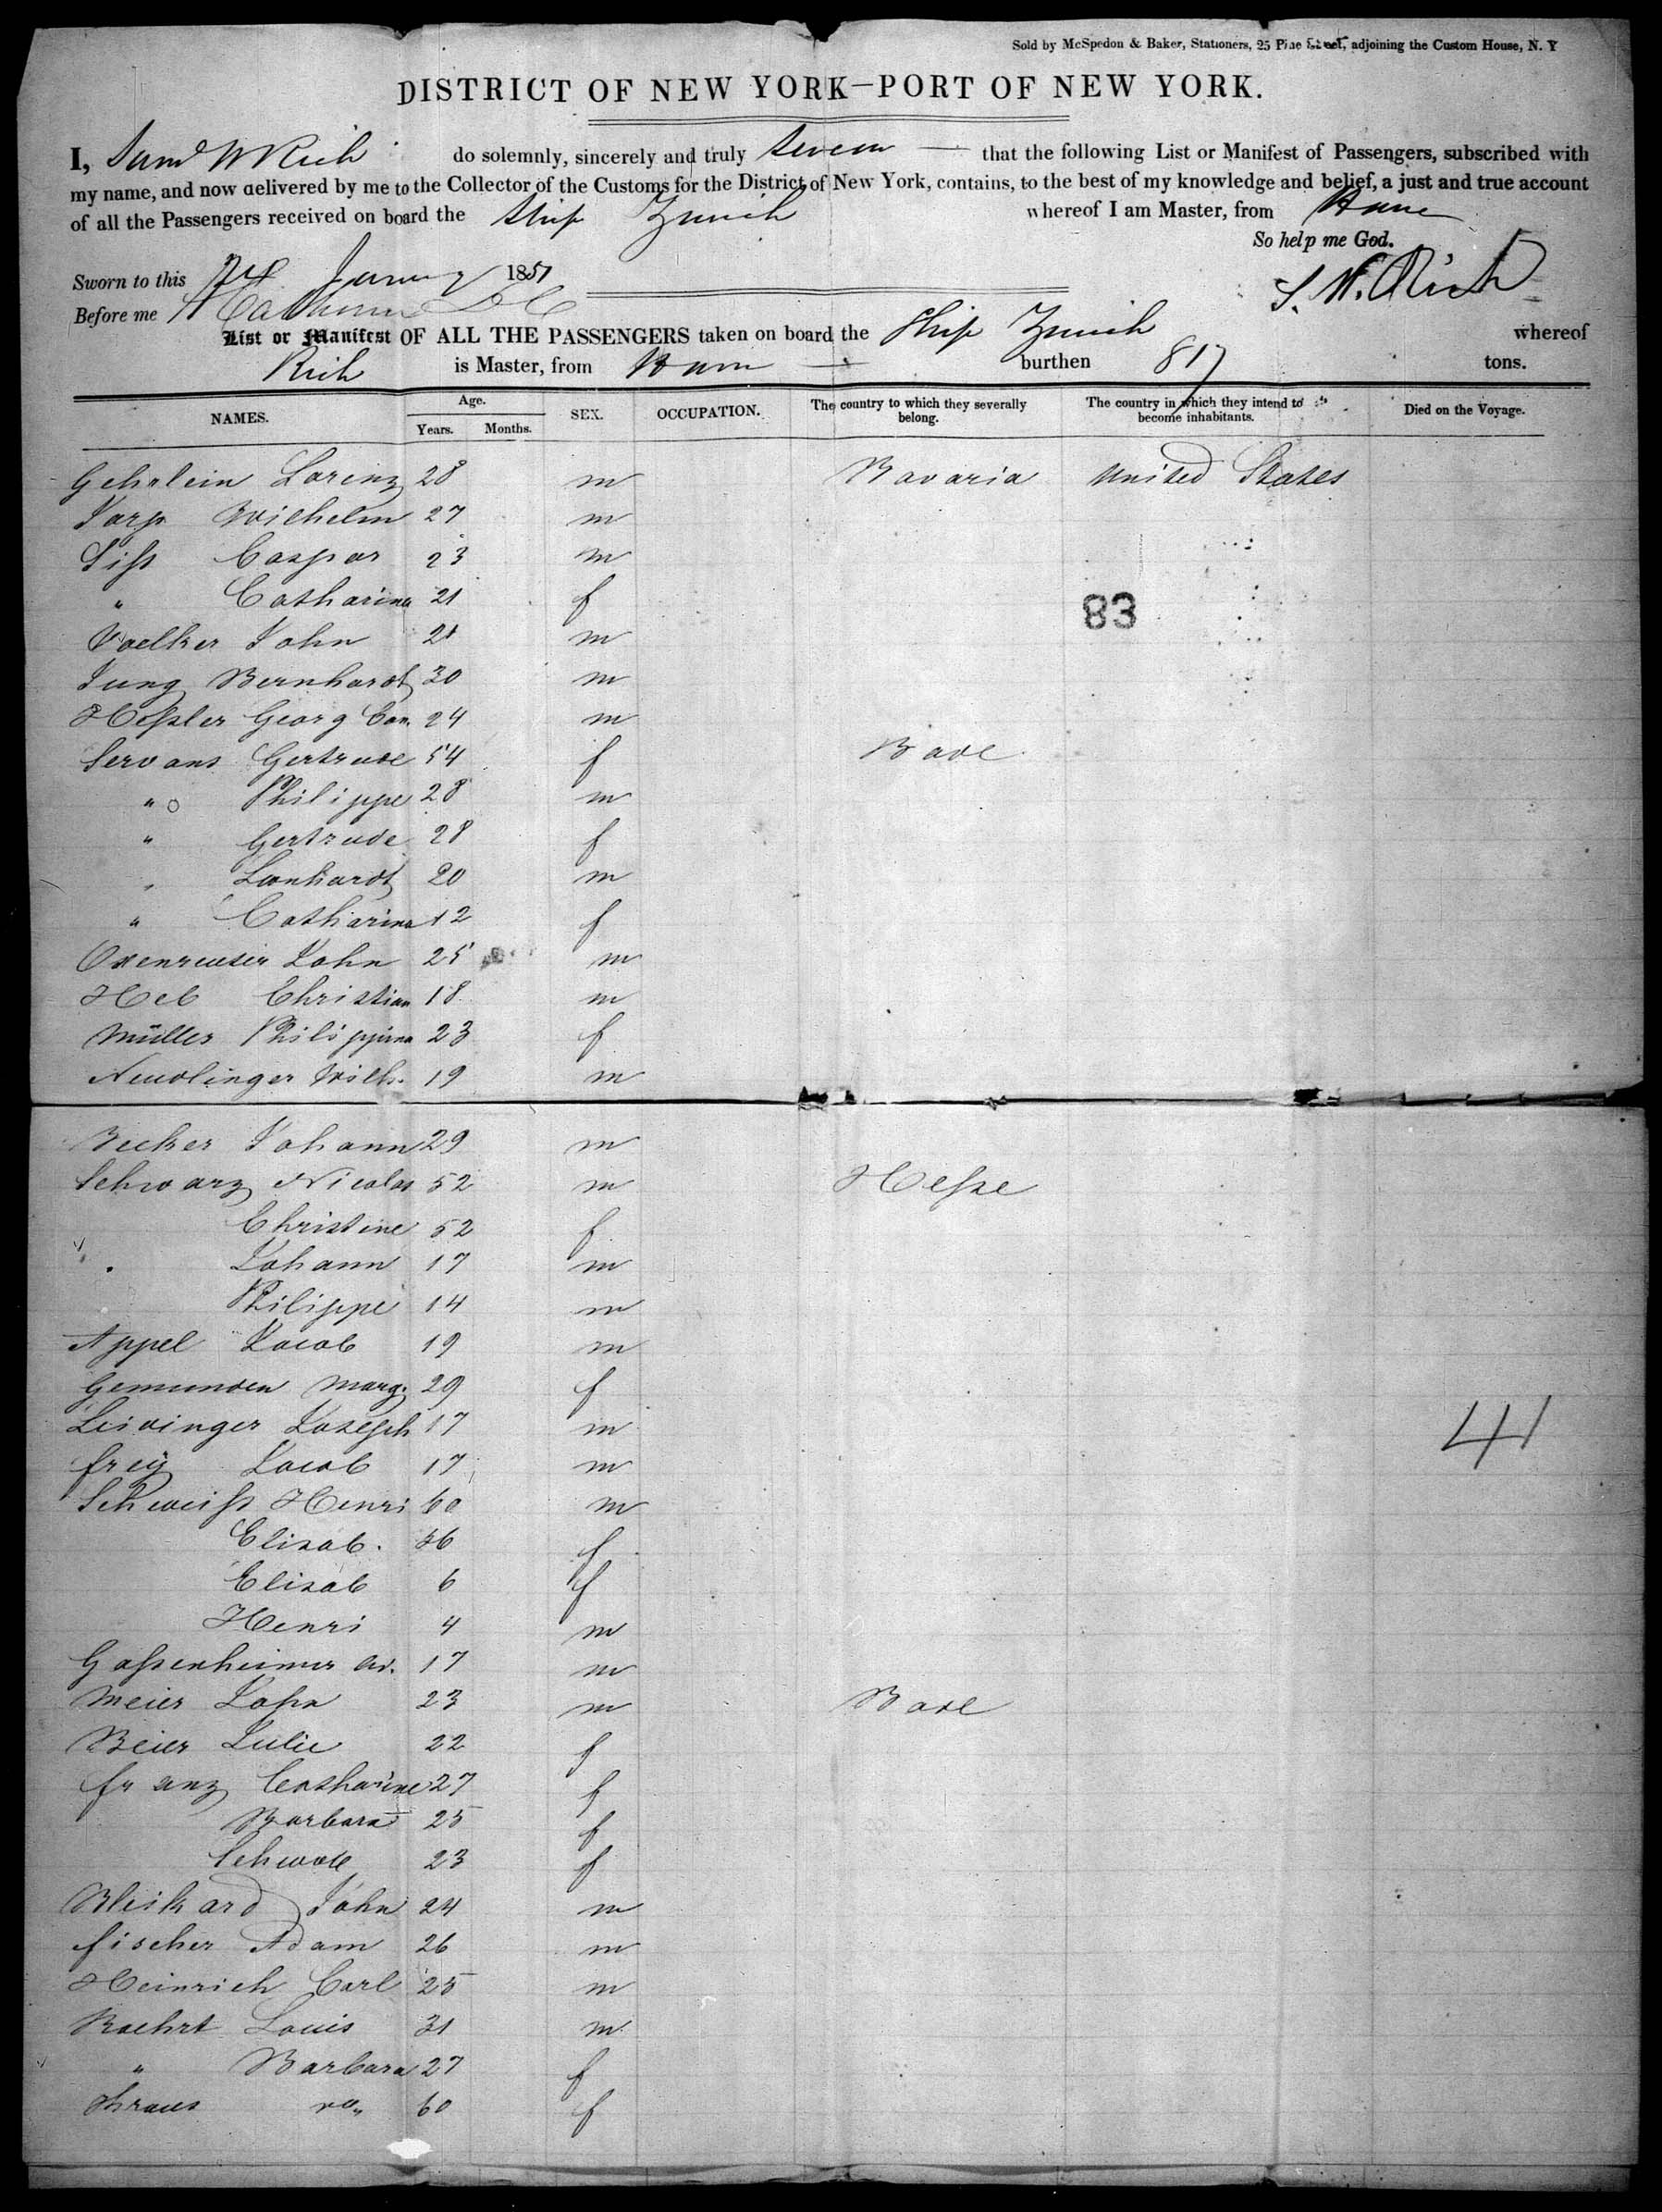 Sold by McSpedon & Baker, Stationers, 25 Pine Street, adjoining the Custom House, N. Y
DISTRICT OF NEW YORK—PORT OF NEW YORK.
I, Saml W Rich do solemnly, sincerely and truly swear — that the following List or Manifest of Passengers, subscribed with
my name, and now delivered by me to the Collector of the Customs for the District of New York, contains, to the best of my knowledge and belief, a just and true account
of all the Passengers received on board the Ship Zurich whereof I am Master, from Havre
So help me God.
Sworn to this 24 January 1851
S. W. Rich
Before me
List or Manifest OF ALL THE PASSENGERS taken on board the Ship Zurich whereof
Rich is Master, from Havre burthen 817 tons.
NAMES. Age. Years. Months. SEX. OCCUPATION. The country to which they severally belong. The country in which they intend to become inhabitants. Died on the Voyage.
Gehrlein Lorenz 28 m Bavaria United States
Wilhelm 27 m
Caspar 23 m
" Catharina 21 f
83
Voelker John 21 m
Jung Bernhardt 30 m
Heßler Georg Con. 24 m
Servans Gertrude 54 f Bade
" Philippe 28 m
" Gertrude 28 f
" Leonhardt 20 m
" Catharina 12 f
Oxenreuter John 25 m
Heb Christian 18 m
Müller Philippina 23 f
Neudlinger Wilh. 19 m
Becker Johann 29 m
Schwarz Nicolas 52 m Heßse
Christine 52 f
Johann 17 m
Philippe 14 m
Appel Jacob 19 m
Gemunden Marg. 29 f
Leidinger Joseph 17 m
41
Frey Jacob 17 m
Schweiß Henri 60 m
Elisab. 36 f
Elisab 6 f
Henri 4 m
Gaßenheimer 17 m
Meier John 23 m Bade
Beier Julie 22 f
Franz Catharine 27 f
Barbara 25 f
23 f
Bleikard John 24 m
Fischer Adam 26 m
Heinrich Carl 25 m
Roehrt Louis 31 m
" Barbara 27 f
Kraus do " 60 f